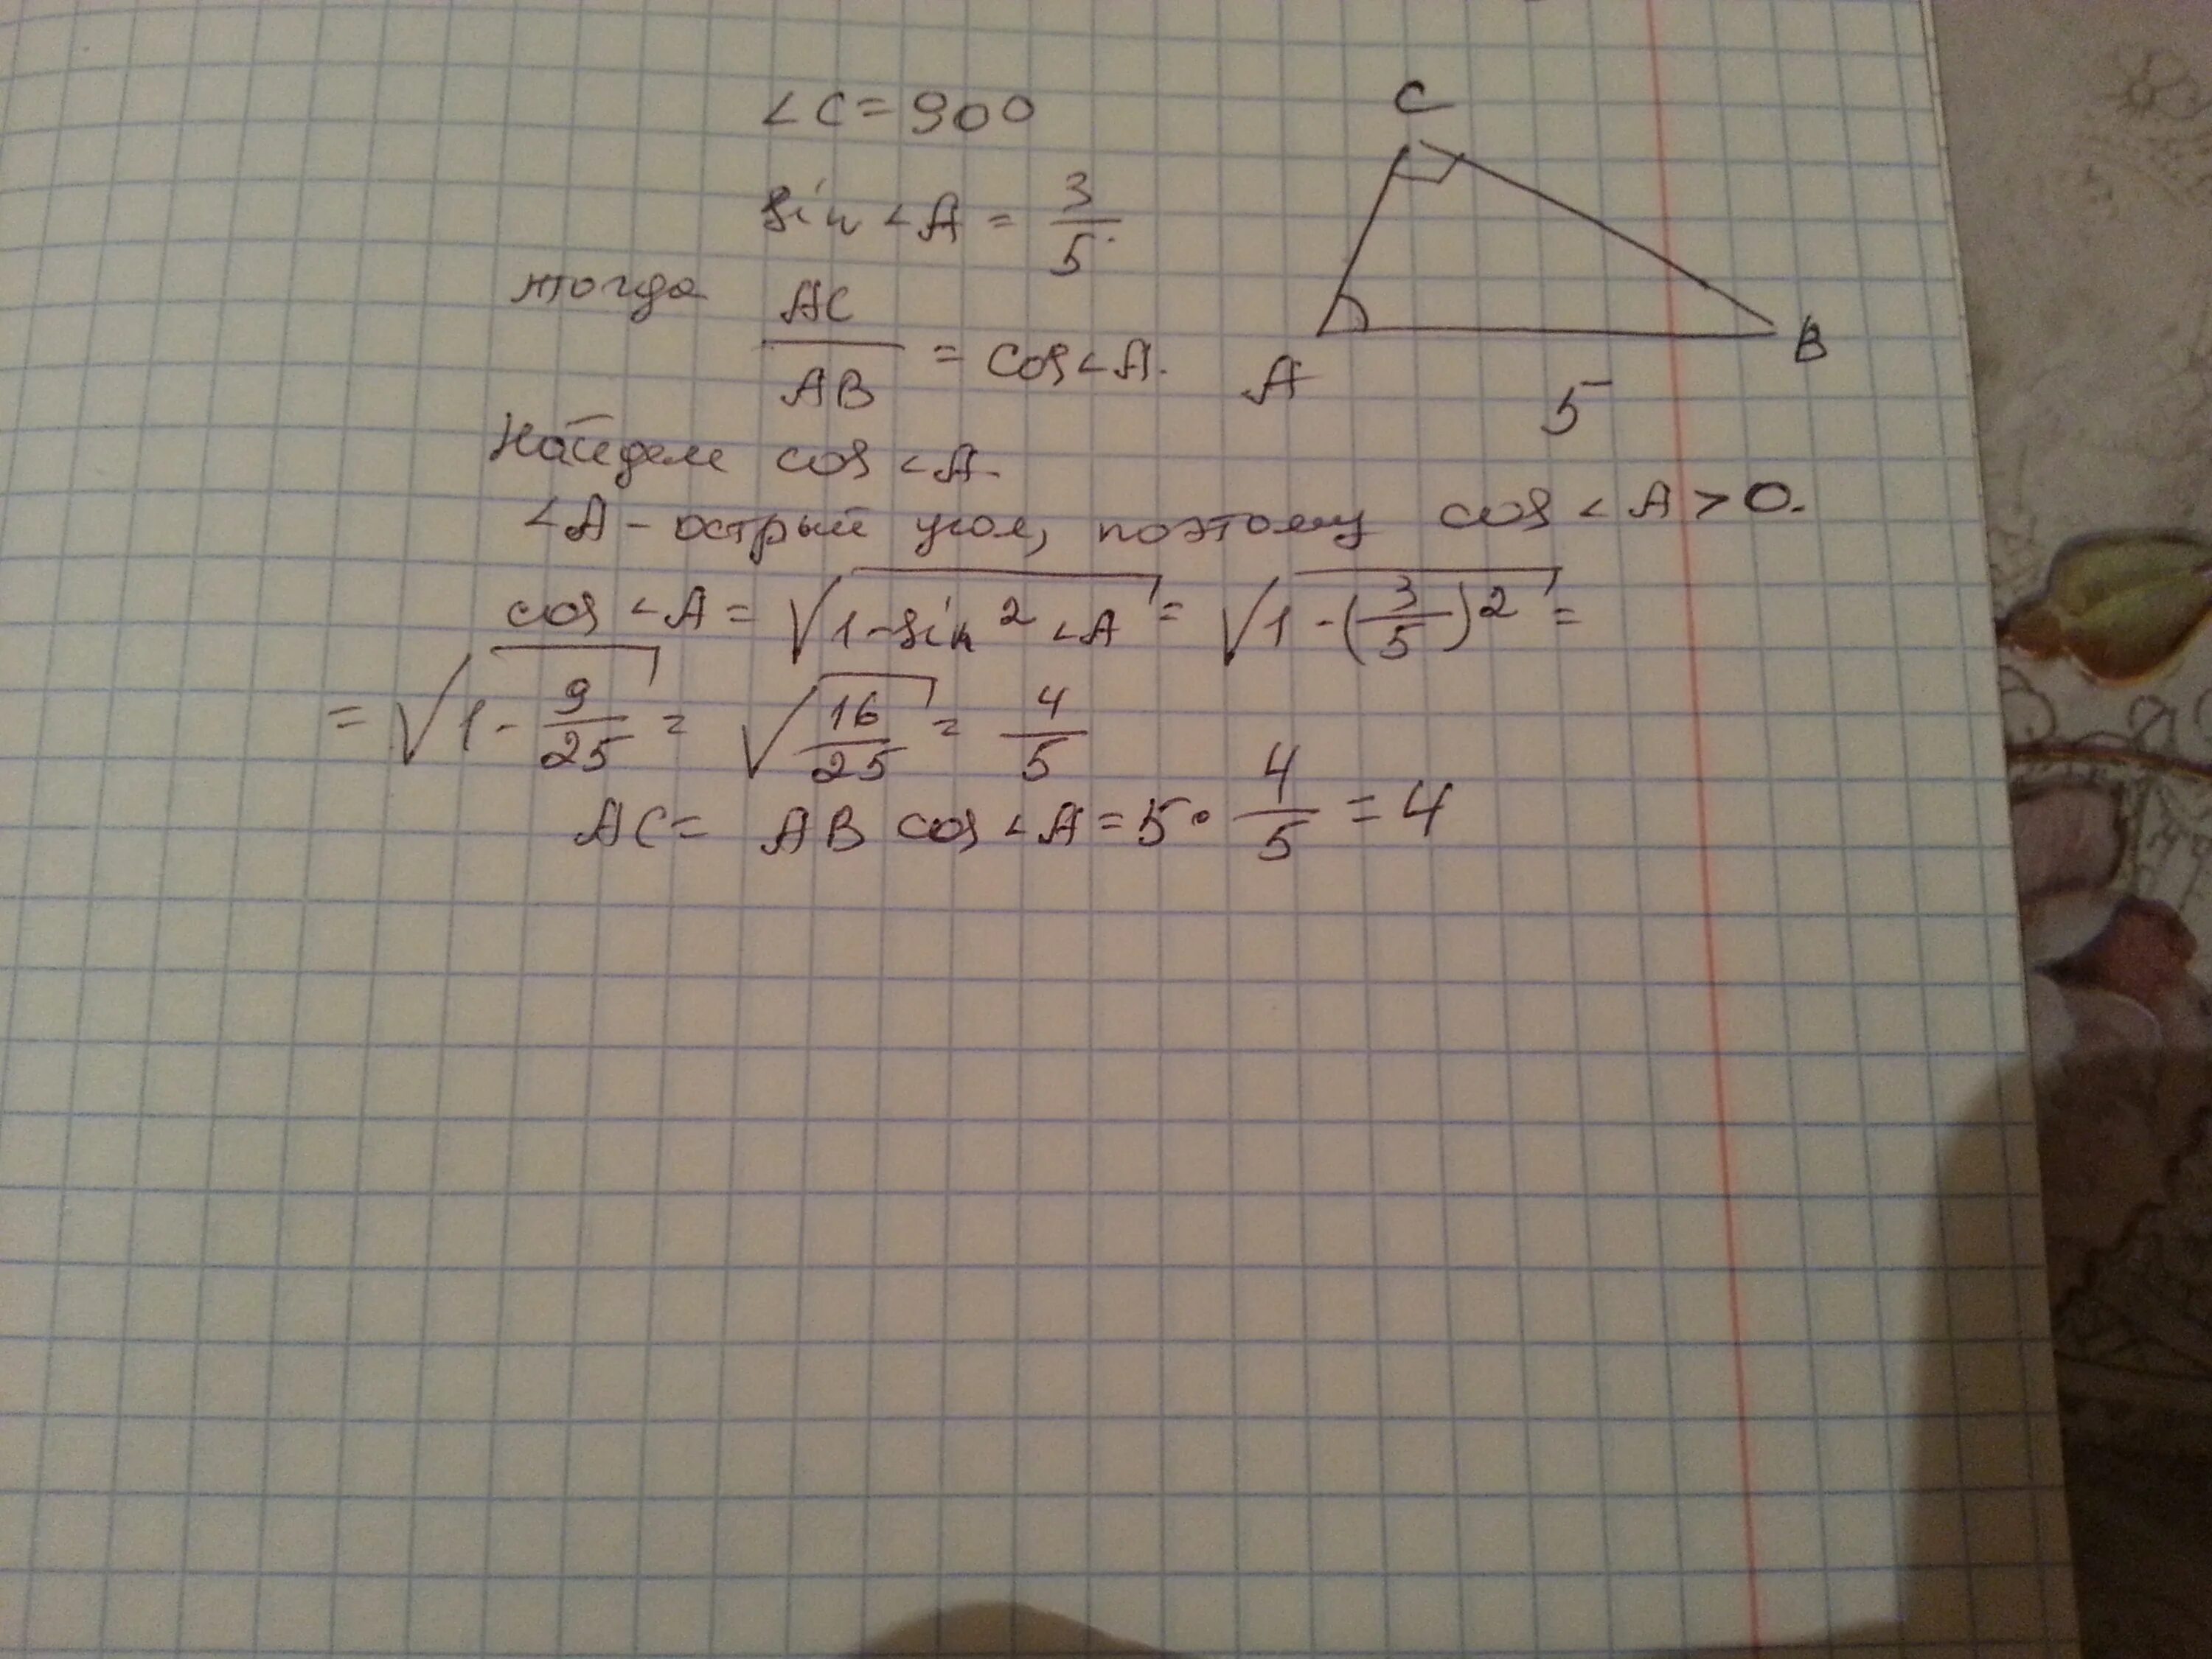 ∠C = 90°
sin ∠A = 3/5.
тогда AC/AB = cos ∠A.
Найдем cos ∠A.
∠A - острый угол, поэтому cos ∠A > 0.
cos ∠A = √(1 - sin² ∠A) = √(1 - (3/5)²) =
= √(1 - 9/25) = √(16/25) = 4/5
AC = AB cos ∠A = 5 · 4/5 = 4
C
A
B
5